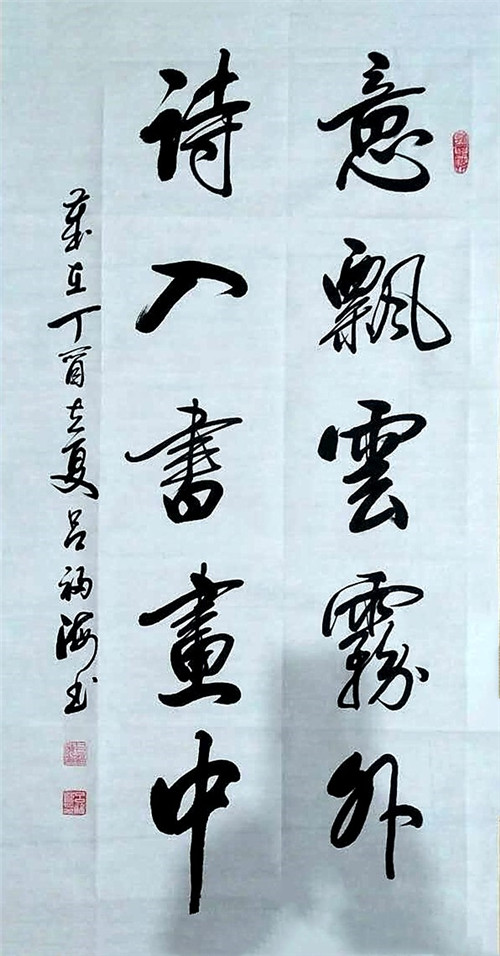 意飄雲霧外
诗入書畫中
歲在丁酉立夏吕福海书